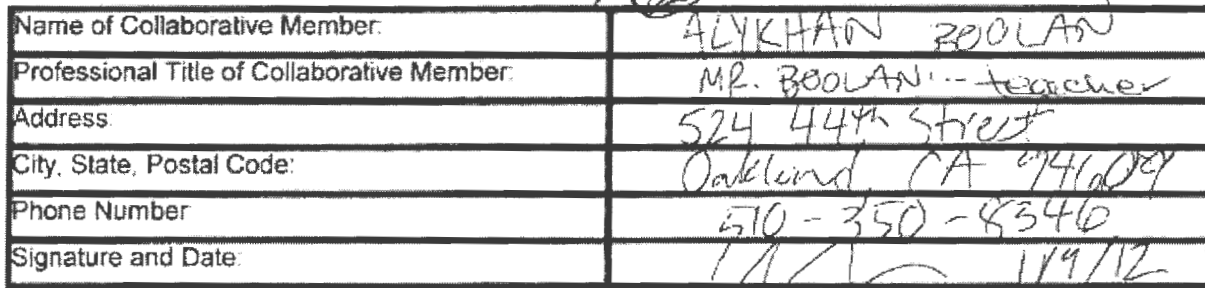 Name of Collaborative Member: ALYKHAN BOOLANI
Professional Title of Collaborative Member: MR. BOOLANI -- teacher
Address: 524 44th Street
City, State, Postal Code: Oakland, CA 94609
Phone Number 510-350-8346
Signature and Date: 1/9/12